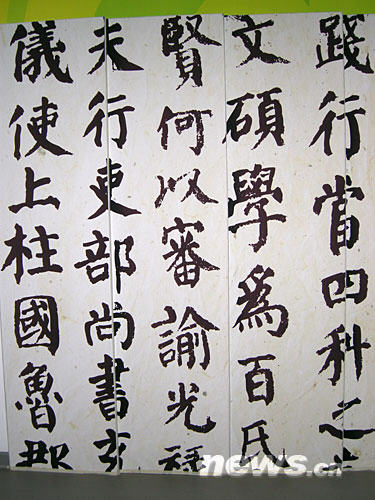 踐行當四科之
文碩學爲百氏
賢何以審諭光
夫行吏部尚書
儀使上柱國魯郡
news.cn